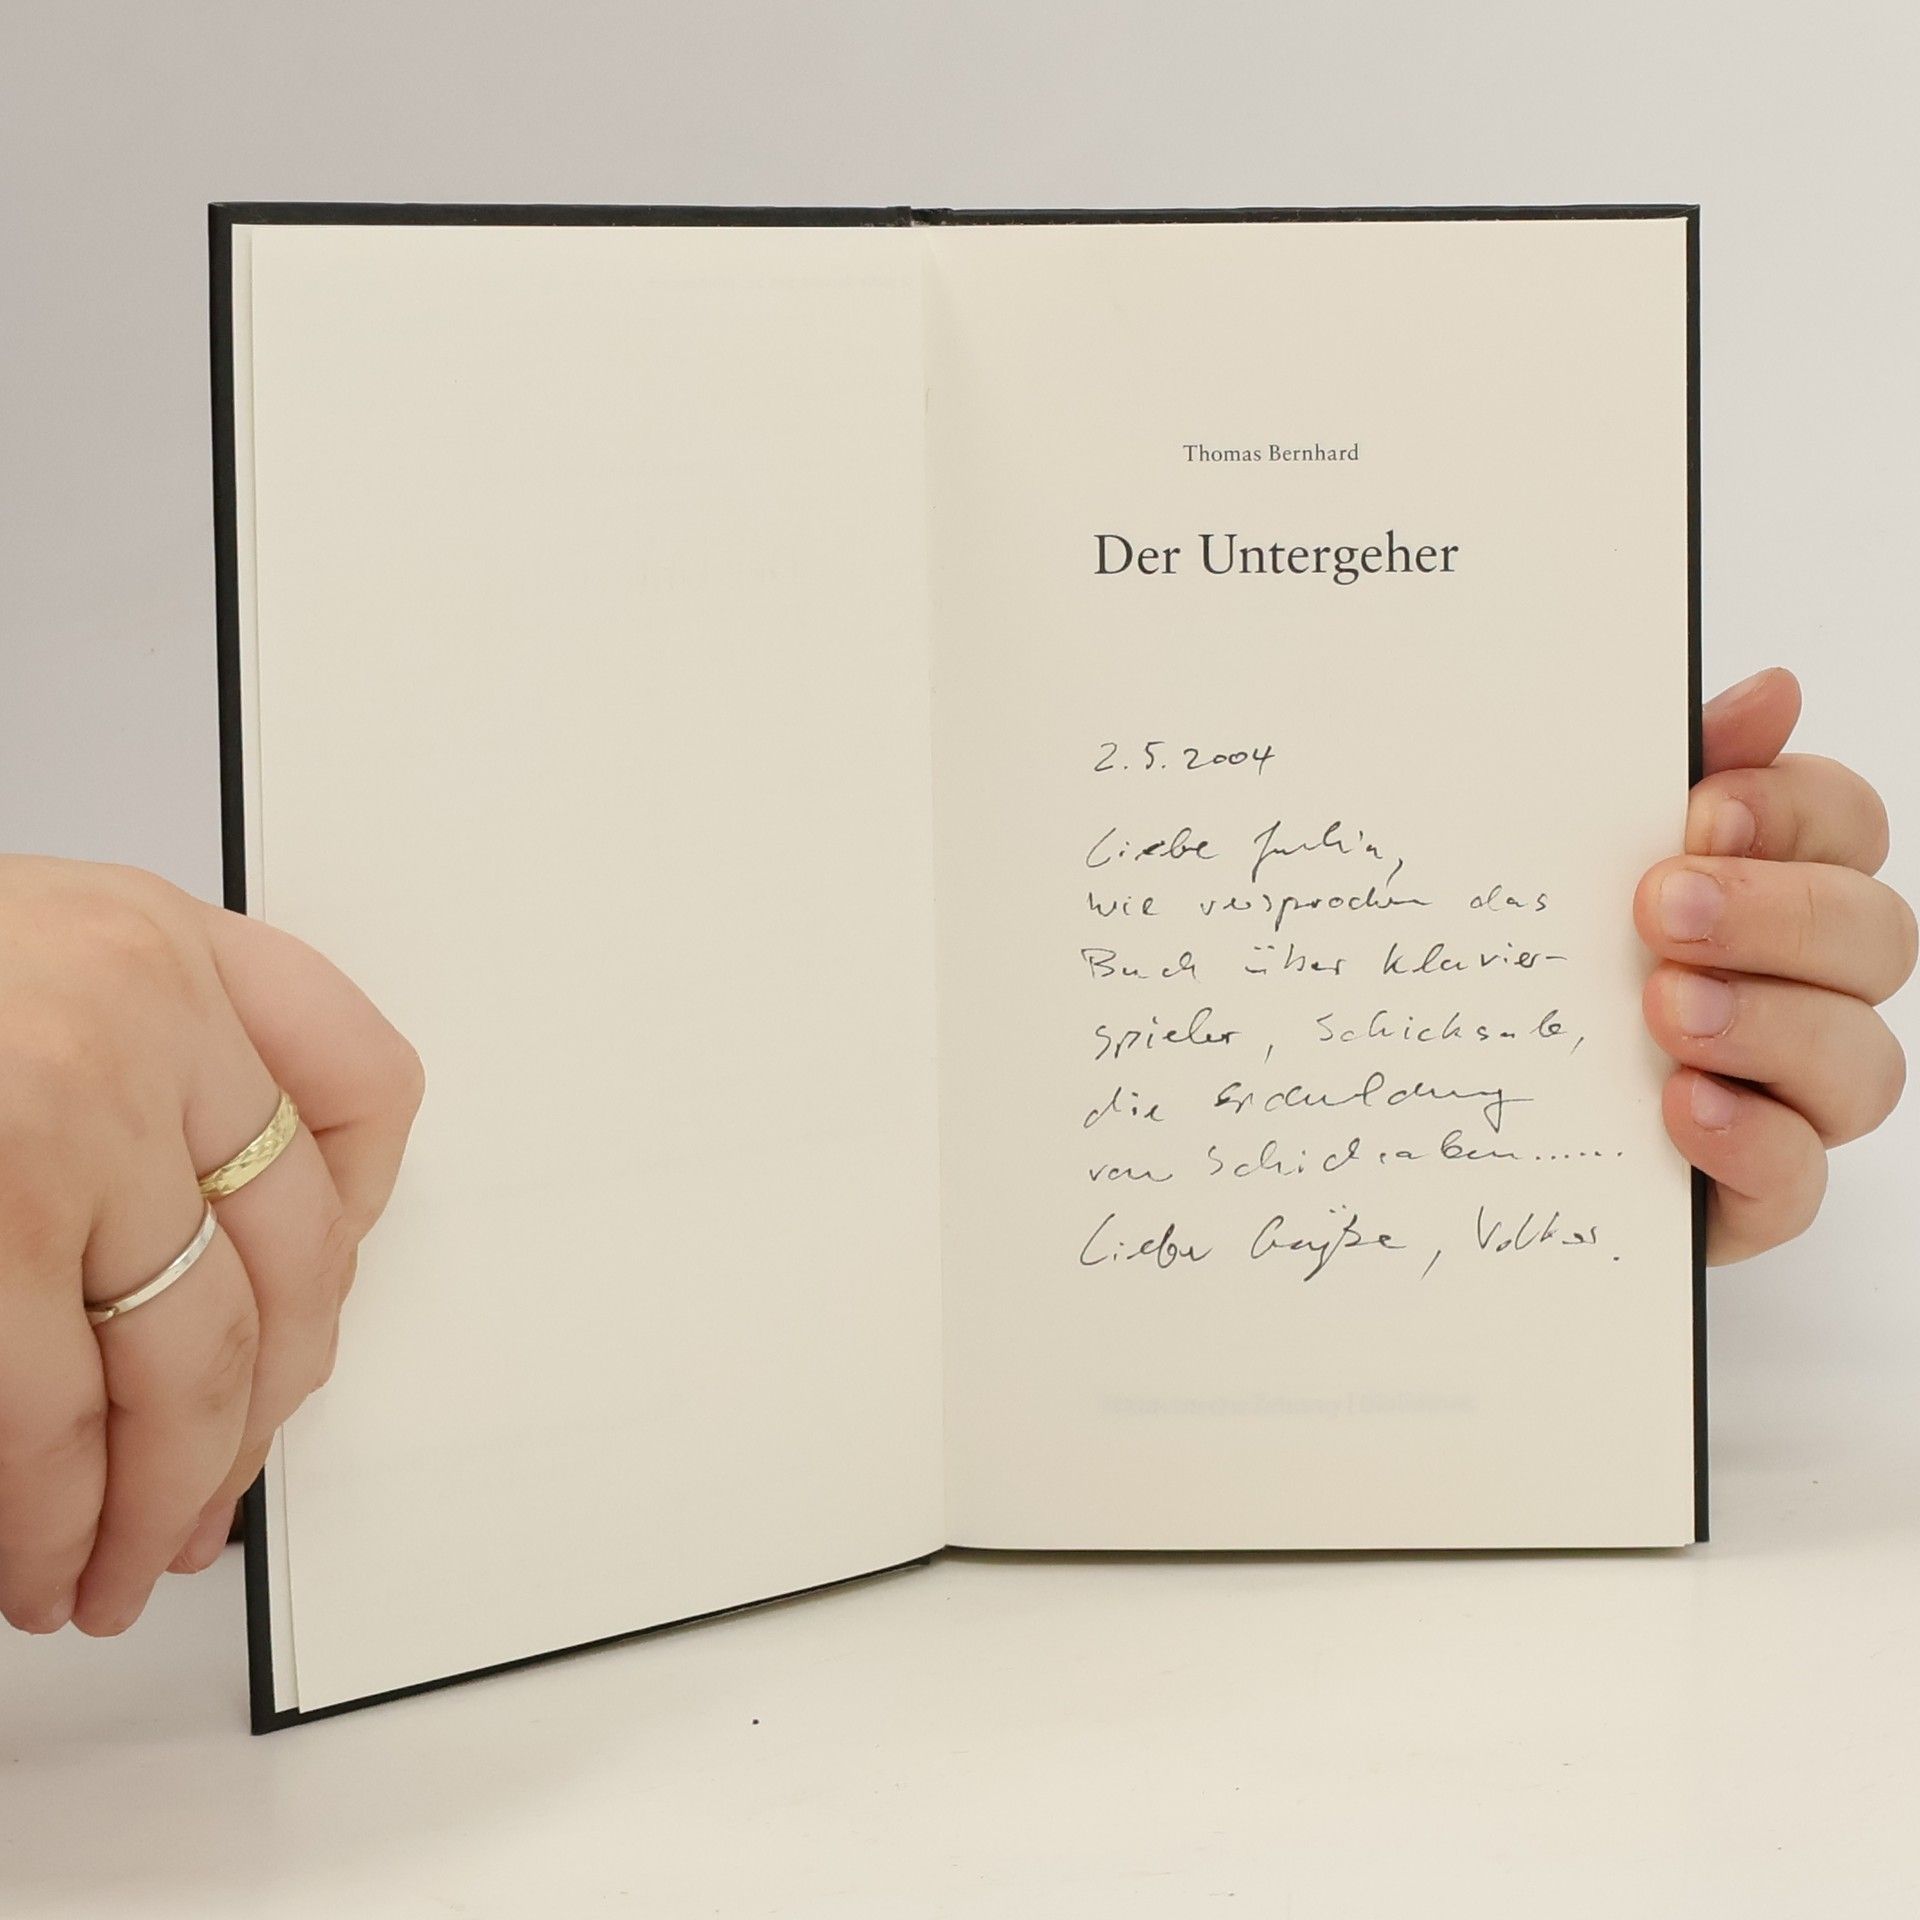 Thomas Bernhard
Der Untergeher
2.5.2004
Liebe
wie versprochen das
Buch über Klavier-
spieler, Schicksale,
die Erduldung
von Schicksalen......
Liebe Grüße, Volker.